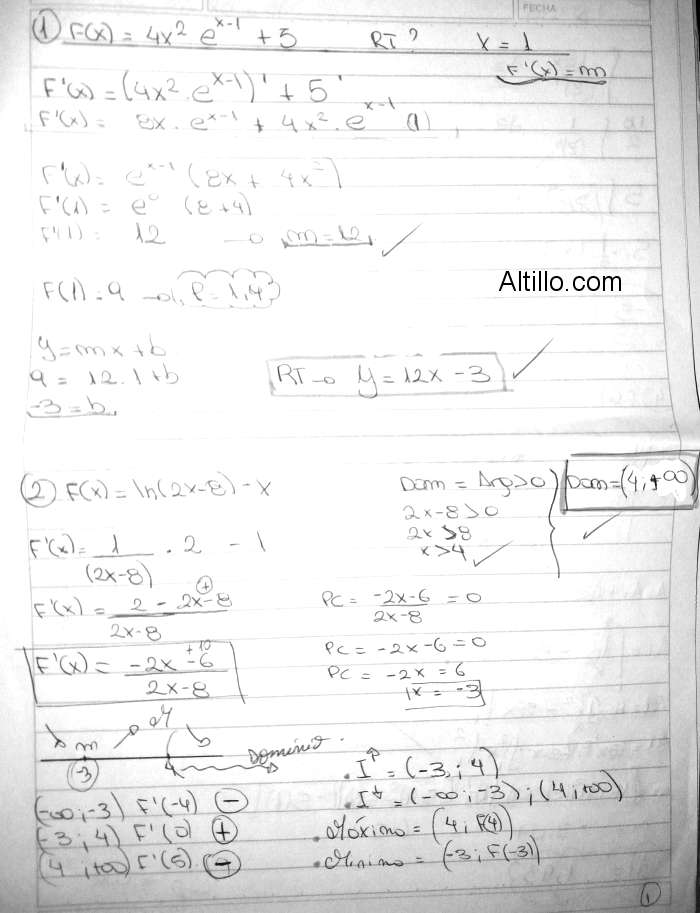 FECHA
① F(x) = 4x² e^(x-1) + 5 RT? x = 1
F'(x) = m
F'(x) = (4x² · e^(x-1))' + 5'
F'(x) = 8x · e^(x-1) + 4x² · e^(x-1) (1)
F'(x) = e^(x-1) (8x + 4x²)
F'(1) = e⁰ (8+4)
F'(1) = 12 → m = 12 ✓
F(1) = 9 → P = 1,4
Altillo.com
y = mx + b
9 = 12.1 + b
-3 = b
RT → y = 12x - 3 ✓
② F(x) = ln(2x-8) - x
Dom = Arg > 0
2x-8 > 0
2x > 8
x > 4 ✓
Dom = (4, +∞) ✓
F'(x) = 1/(2x-8) . 2 - 1
F'(x) = (2 - 2x - 8)/(2x-8)
+
F'(x) = (-2x - 6)/(2x-8)
+10
PC = (-2x-6)/(2x-8) = 0
PC = -2x-6 = 0
PC = -2x = 6
x = -3
m M
-3 4 Dominio.
(-∞; -3) F'(-4) ⊖
(-3; 4) F'(0) ⊕
(4, +∞) F'(5) ⊖
. I↑ = (-3; 4)
. I↓ = (-∞; -3); (4; +∞)
. Máximo = (4; F(4))
. Mínimo = (-3; F(-3))
①